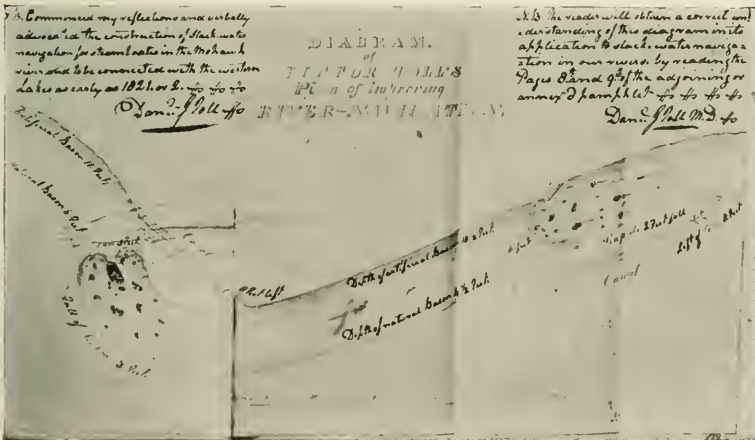 N.B. Commenced my reflections and verbally
advocated the construction of slack water
navigation for steamboats in the Mohawk
river and to be connected with the western
Lakes as early as 1821 or 2.
Danl. J Toll
DIAGRAM.
of
DOCTOR TOLL'S
Plan of improving
RIVER-NAVIGATION.
N.B The reader will obtain a correct un=
derstanding of this diagram in its
application to slack-water naviga=
tion in our rivers by reading the
Pages 8th and 9th of the adjoining or
annex'd pamphlet
Danl. J Toll M.D.
Artificial Bason 12 Feet
Natural Bason 6 Feet
Fall of 3 Feet
Depth of artificial Bason 10 ½ Feet
Depth of natural Bason 4 ½ Feet
6 feet
Rapids 2 Feet fall
Canal
Lift of 2 Feet